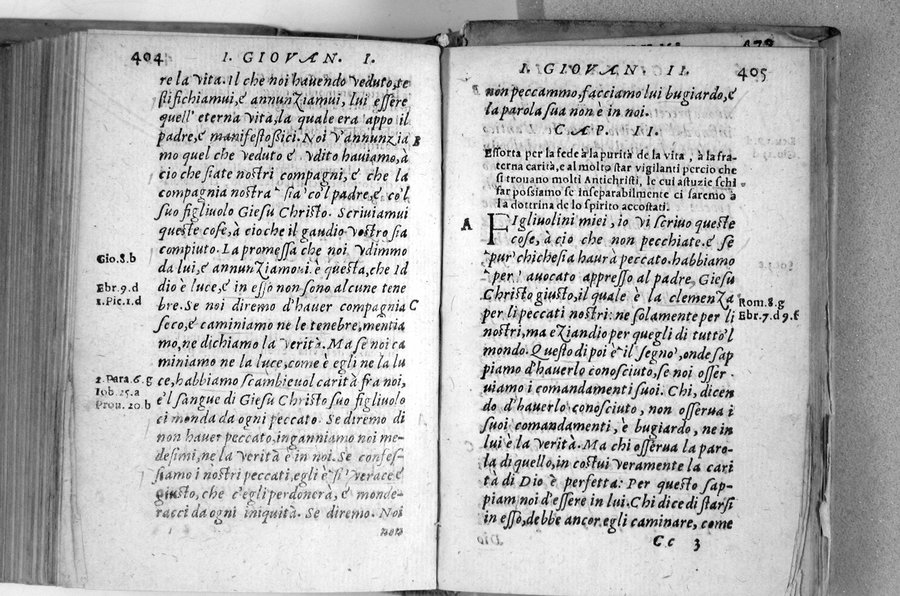 404
I. GIOVAN. I.
re la vita. Il che noi havendo veduto, te
stifichiamui, e annunziamui, lui essere
quell' eterna vita, la quale era appo il
padre, e manifestossici. Noi v'annunzia
mo quel che veduto e vdito haviamo, à
cio che siate nostri compagni, e che la
compagnia nostra sia co'l padre, e co'l
suo figliuolo Giesu Christo. Scriuiamui
queste cose, à cio che il gaudio vostro sia
compiuto. La promessa che noi vdimmo
da lui, e annunziamoui è questa, che Id
dio è luce, e in esso non sono alcune tene
bre. Se noi diremo d'hauer compagnia
seco, e caminiamo ne le tenebre, mentia
mo, ne dichiamo la verità. Ma se noi ca
miniamo ne la luce, come è egli ne la lu
ce, habbiamo scambieuol carità fra noi,
e'l sangue di Giesu Christo suo figliuolo
ci monda da ogni peccato. Se diremo di
non hauer peccato, inganniamo noi me-
desimi, ne la verità è in noi. Se confes-
siamo i nostri peccati, egli è si verace e
giusto, che c'egli perdonerà, e monde-
racci da ogni iniquità. Se diremo. Noi
non
B
C
Gio. 8. b
Ebr. 9. d
1. Pie. 1. d
2. Para. 6. g
Iob. 25. a
Prou. 20. b
I. GIOVAN. II.
405
non peccammo, facciamo lui bugiardo, e
la parola sua non è in noi.
CAP. II.
Essorta per la fede à la purità de la vita, à la fra-
terna carità, e al molto star vigilanti percio che
si trouano molti Antichristi, le cui astuzie schi
far possiamo se inseparabilmente ci saremo à
la dottrina de lo spirito accostati.
A
FIgliuolini miei, io vi scriuo queste
cose, à cio che non pecchiate. e se
pur chichesia haurà peccato. habbiamo
per auocato appresso al padre, Giesu
Christo giusto, il quale è la clemenza
per li peccati nostri: ne solamente per li
nostri, ma eziandio per quegli di tutto'l
mondo. Questo di poi è il segno, onde sap
piamo d'hauerlo conosciuto, se noi osser
uiamo i comandamenti suoi. Chi, dicen
do d'hauerlo conosciuto, non osserua i
suoi comandamenti, è bugiardo, ne in
lui è la verità. Ma chi osserua la paro-
la di quello, in costui veramente la cari
tà di Dio è perfetta: Per questo sap-
piam noi d'essere in lui. Chi dice di starsi
in esso, debbe ancor egli caminare, come
Cc 3
Rom. 8. g
Ebr. 7. d 9. f